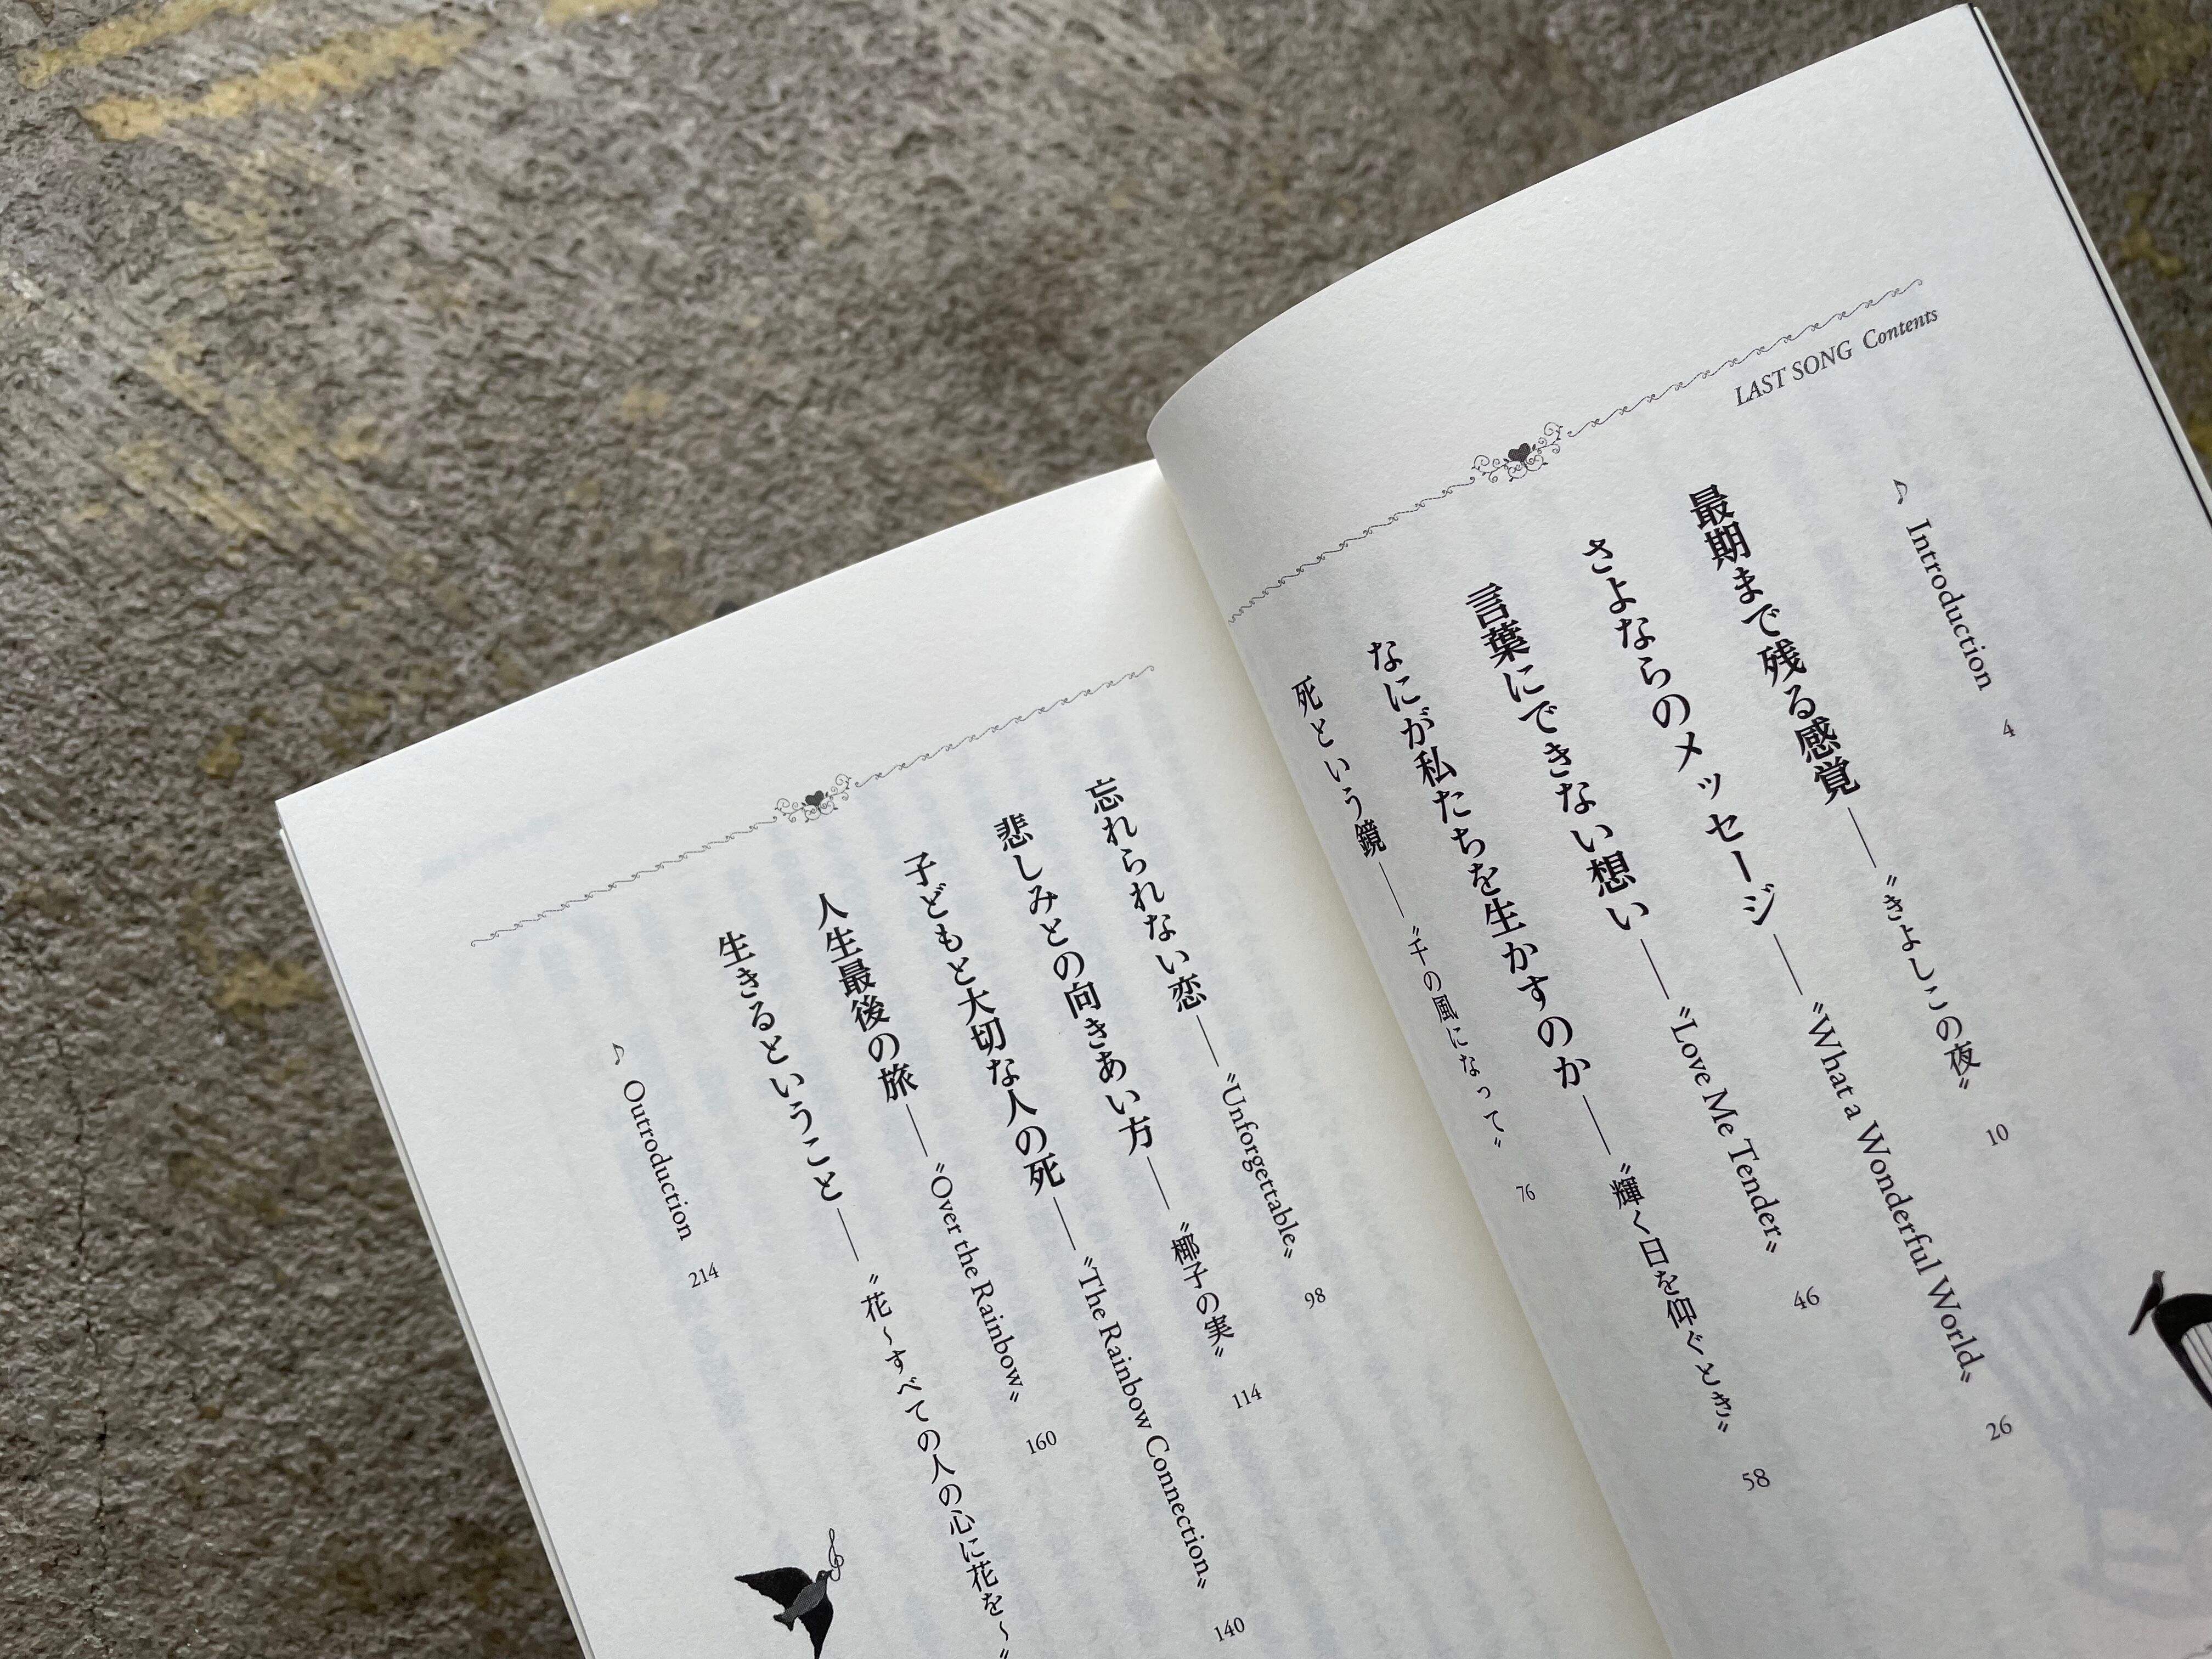 LAST SONG Contents
♪ Introduction 4
最期まで残る感覚——〝きよしこの夜〟 10
さよならのメッセージ——〝What a Wonderful World〟 26
言葉にできない想い——〝Love Me Tender〟 46
なにが私たちを生かすのか——〝輝く日を仰ぐとき〟 58
死という鏡——〝千の風になって〟 76
忘れられない恋——〝Unforgettable〟 98
悲しみとの向きあい方——〝椰子の実〟 114
子どもと大切な人の死——〝The Rainbow Connection〟 140
人生最後の旅——〝Over the Rainbow〟 160
生きるということ——〝花～すべての人の心に花を～〟
♪ Outroduction 214